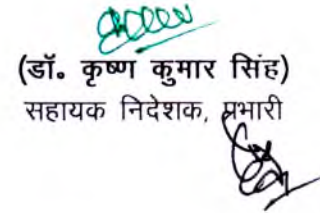 (डॉ० कृष्ण कुमार सिंह)
सहायक निदेशक, प्रभारी